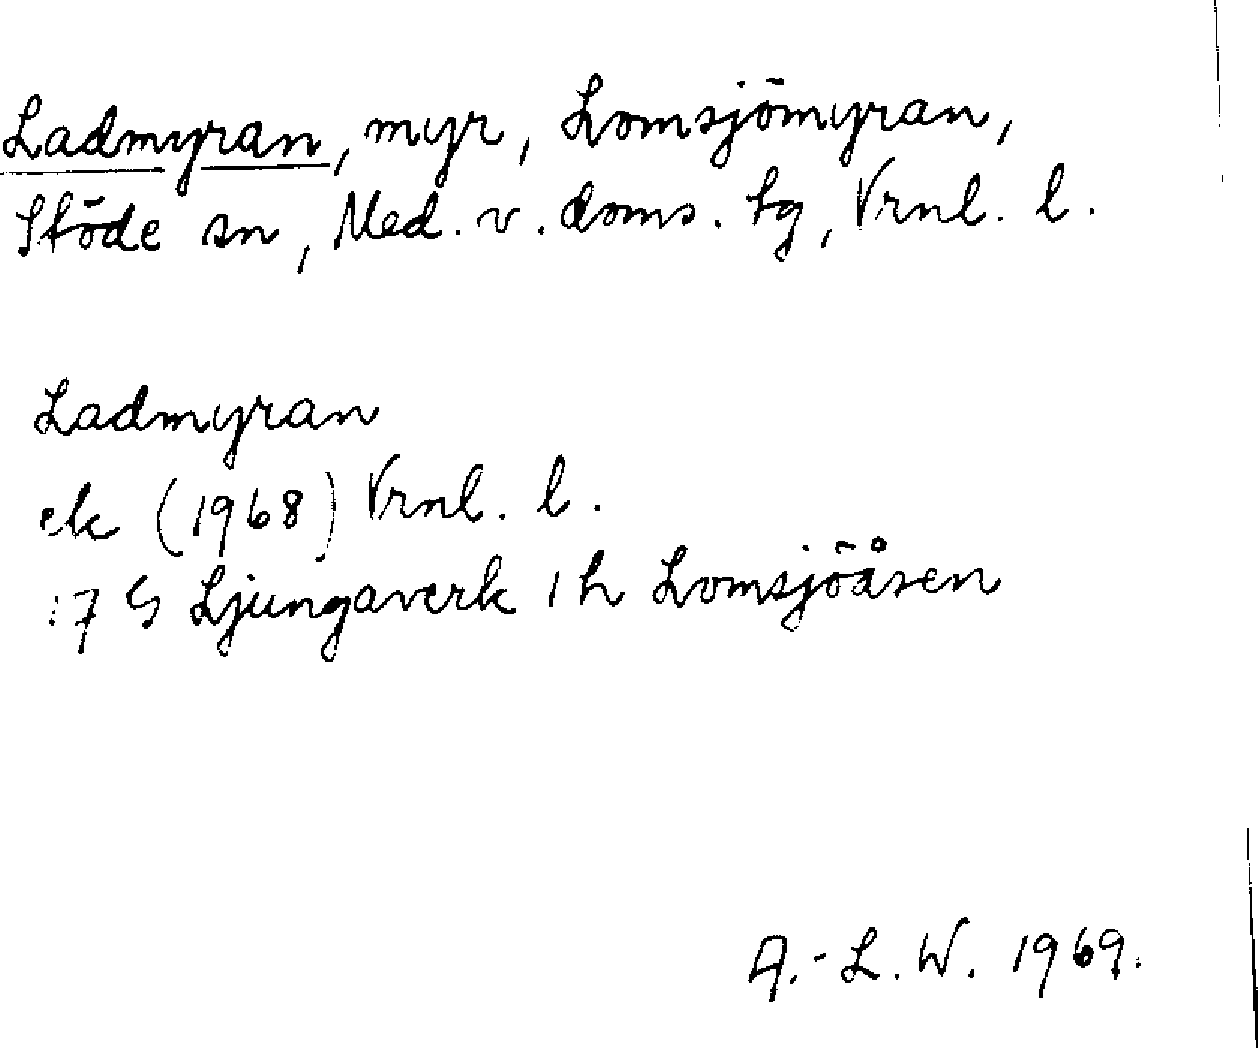 Ladmyran, myr, Lomsjömyran,
Stöde sn, Med. v. doms. tg, Vrnl. l.
Ladmyran
ek (1968) Vrnl. l.
:7 G Ljungaverk 1 h Lomsjöåsen
A.-L. W. 1969.